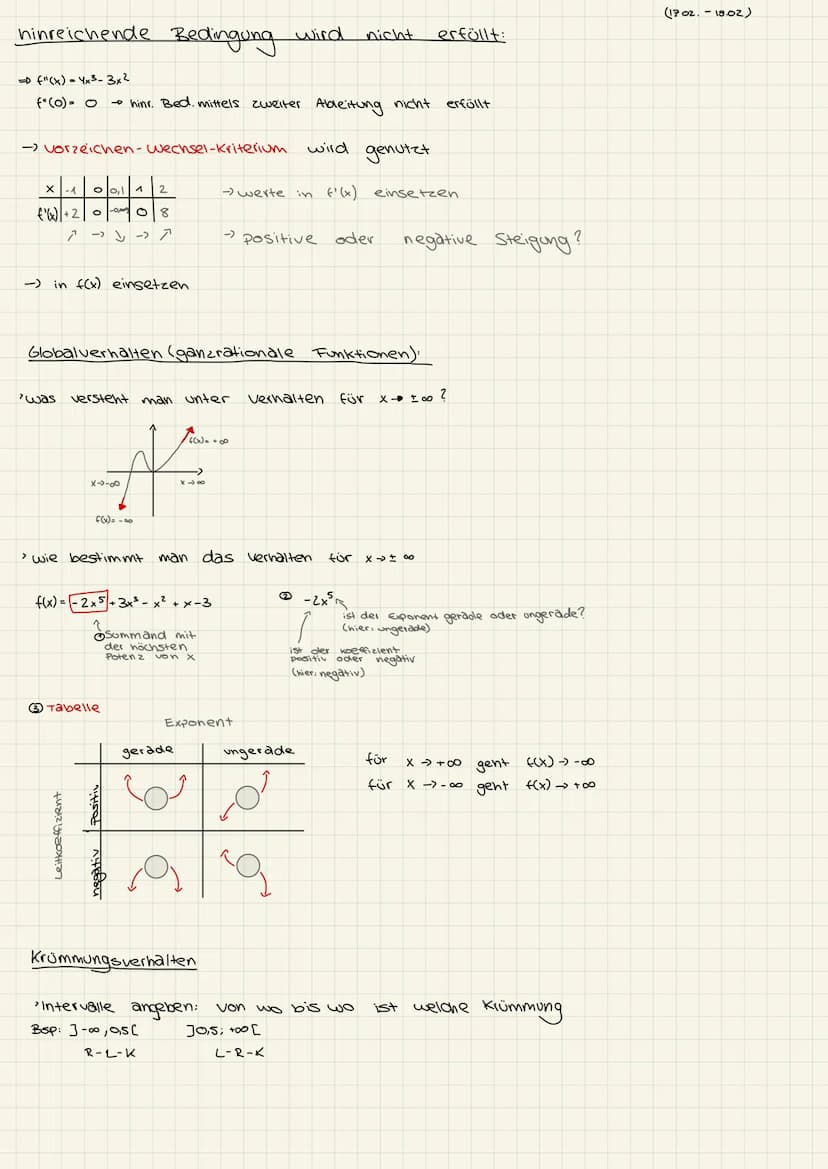 (17.02. - 18.02)
hinreichende Bedingung wird nicht erfüllt:
⇒ f"(x) = 4x³ - 3x²
f"(0) = 0 → hinr. Bed. mittels zweiter Ableitung nicht erfüllt
→ Vorzeichen-Wechsel-Kriterium wird genutzt
x | -1 | 0 | 0,1 | 1 | 2 → Werte in f'(x) einsetzen
f'(x) | +2 | 0 | | 0 | 8
↗ → ↘ → ↗ → positive oder negative Steigung?
→ in f(x) einsetzen
Globalverhalten (ganzrationale Funktionen):
'was versteht man unter Verhalten für x → ±∞?
f(x) = +∞
x→-∞ x→∞
f(x) = -∞
' wie bestimmt man das Verhalten für x → ± ∞
f(x) = -2x⁵ + 3x³ - x² + x - 3 ② -2x⁵
ist der Exponent gerade oder ungerade?
(hier: ungerade)
① Summand mit
der höchsten
Potenz von x
ist der Koeffizient
positiv oder negativ
(hier: negativ)
③ Tabelle
Exponent
gerade ungerade
für x → +∞ geht f(x) → -∞
für x → -∞ geht f(x) → +∞
Leitkoeffizient
Positiv
negativ
Krümmungsverhalten
'Intervalle angeben: von wo bis wo ist welche Krümmung
Bsp: ]-∞; 0,5[ ]0,5; +∞[
R-L-K L-R-K